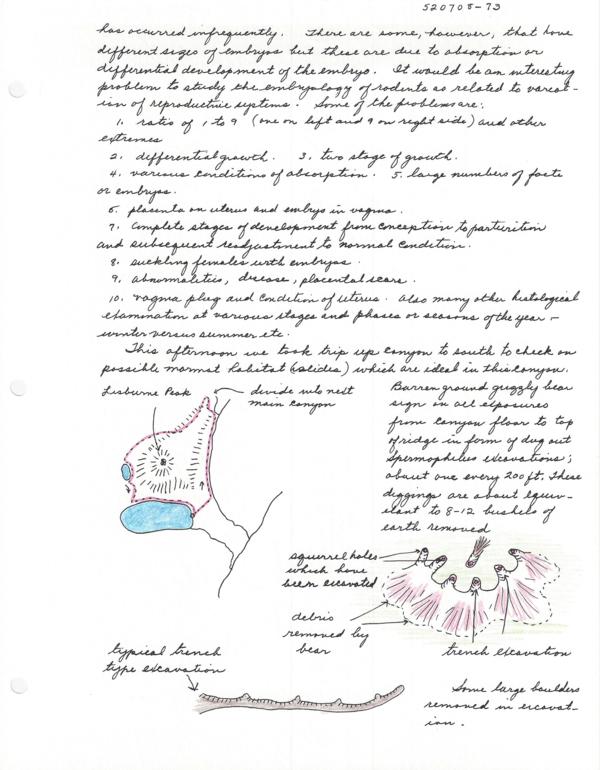 520708-73
has occurred infrequently. There are some, however, that have
different sizes of embryos but these are due to absorption or
differential development of the embryo. It would be an interesting
problem to study the embryology of rodents as related to variat-
ion of reproductive systems. Some of the problems are:
1. ratio of 1 to 9 (one on left and 9 on right side) and other
extremes
2. differential growth. 3. two stage of growth.
4. various conditions of absorption. 5. large numbers of foete
or embryos.
6. placenta on uterus and embryo in vagina.
7. Complete stages of development from conception to parturition
and subsequent readjustment to normal condition.
8. suckling females with embryos.
9. abnormalities, disease, placental scars.
10. vagina plug and condition of uterus. Also many other histological
examination at various stages and phases or seasons of the year -
winter versus summer etc.
This afternoon we took trip up canyon to south to check on
possible marmot habitat (slides) which are ideal in this canyon.
Lisburne Peak
divide into next
main canyon
Barren ground grizzly bear
sign on all exposures
from canyon floor to top
of ridge in form of dug out
Spermophilus excavations;
about one every 200 ft. These
diggings are about equiv-
elant to 8-12 bushels of
earth removed
squirrel holes
which have
been excavated
debris
removed by
bear
trench excavation
typical trench
type excavation
Some large boulders
removed in excavat-
ion.